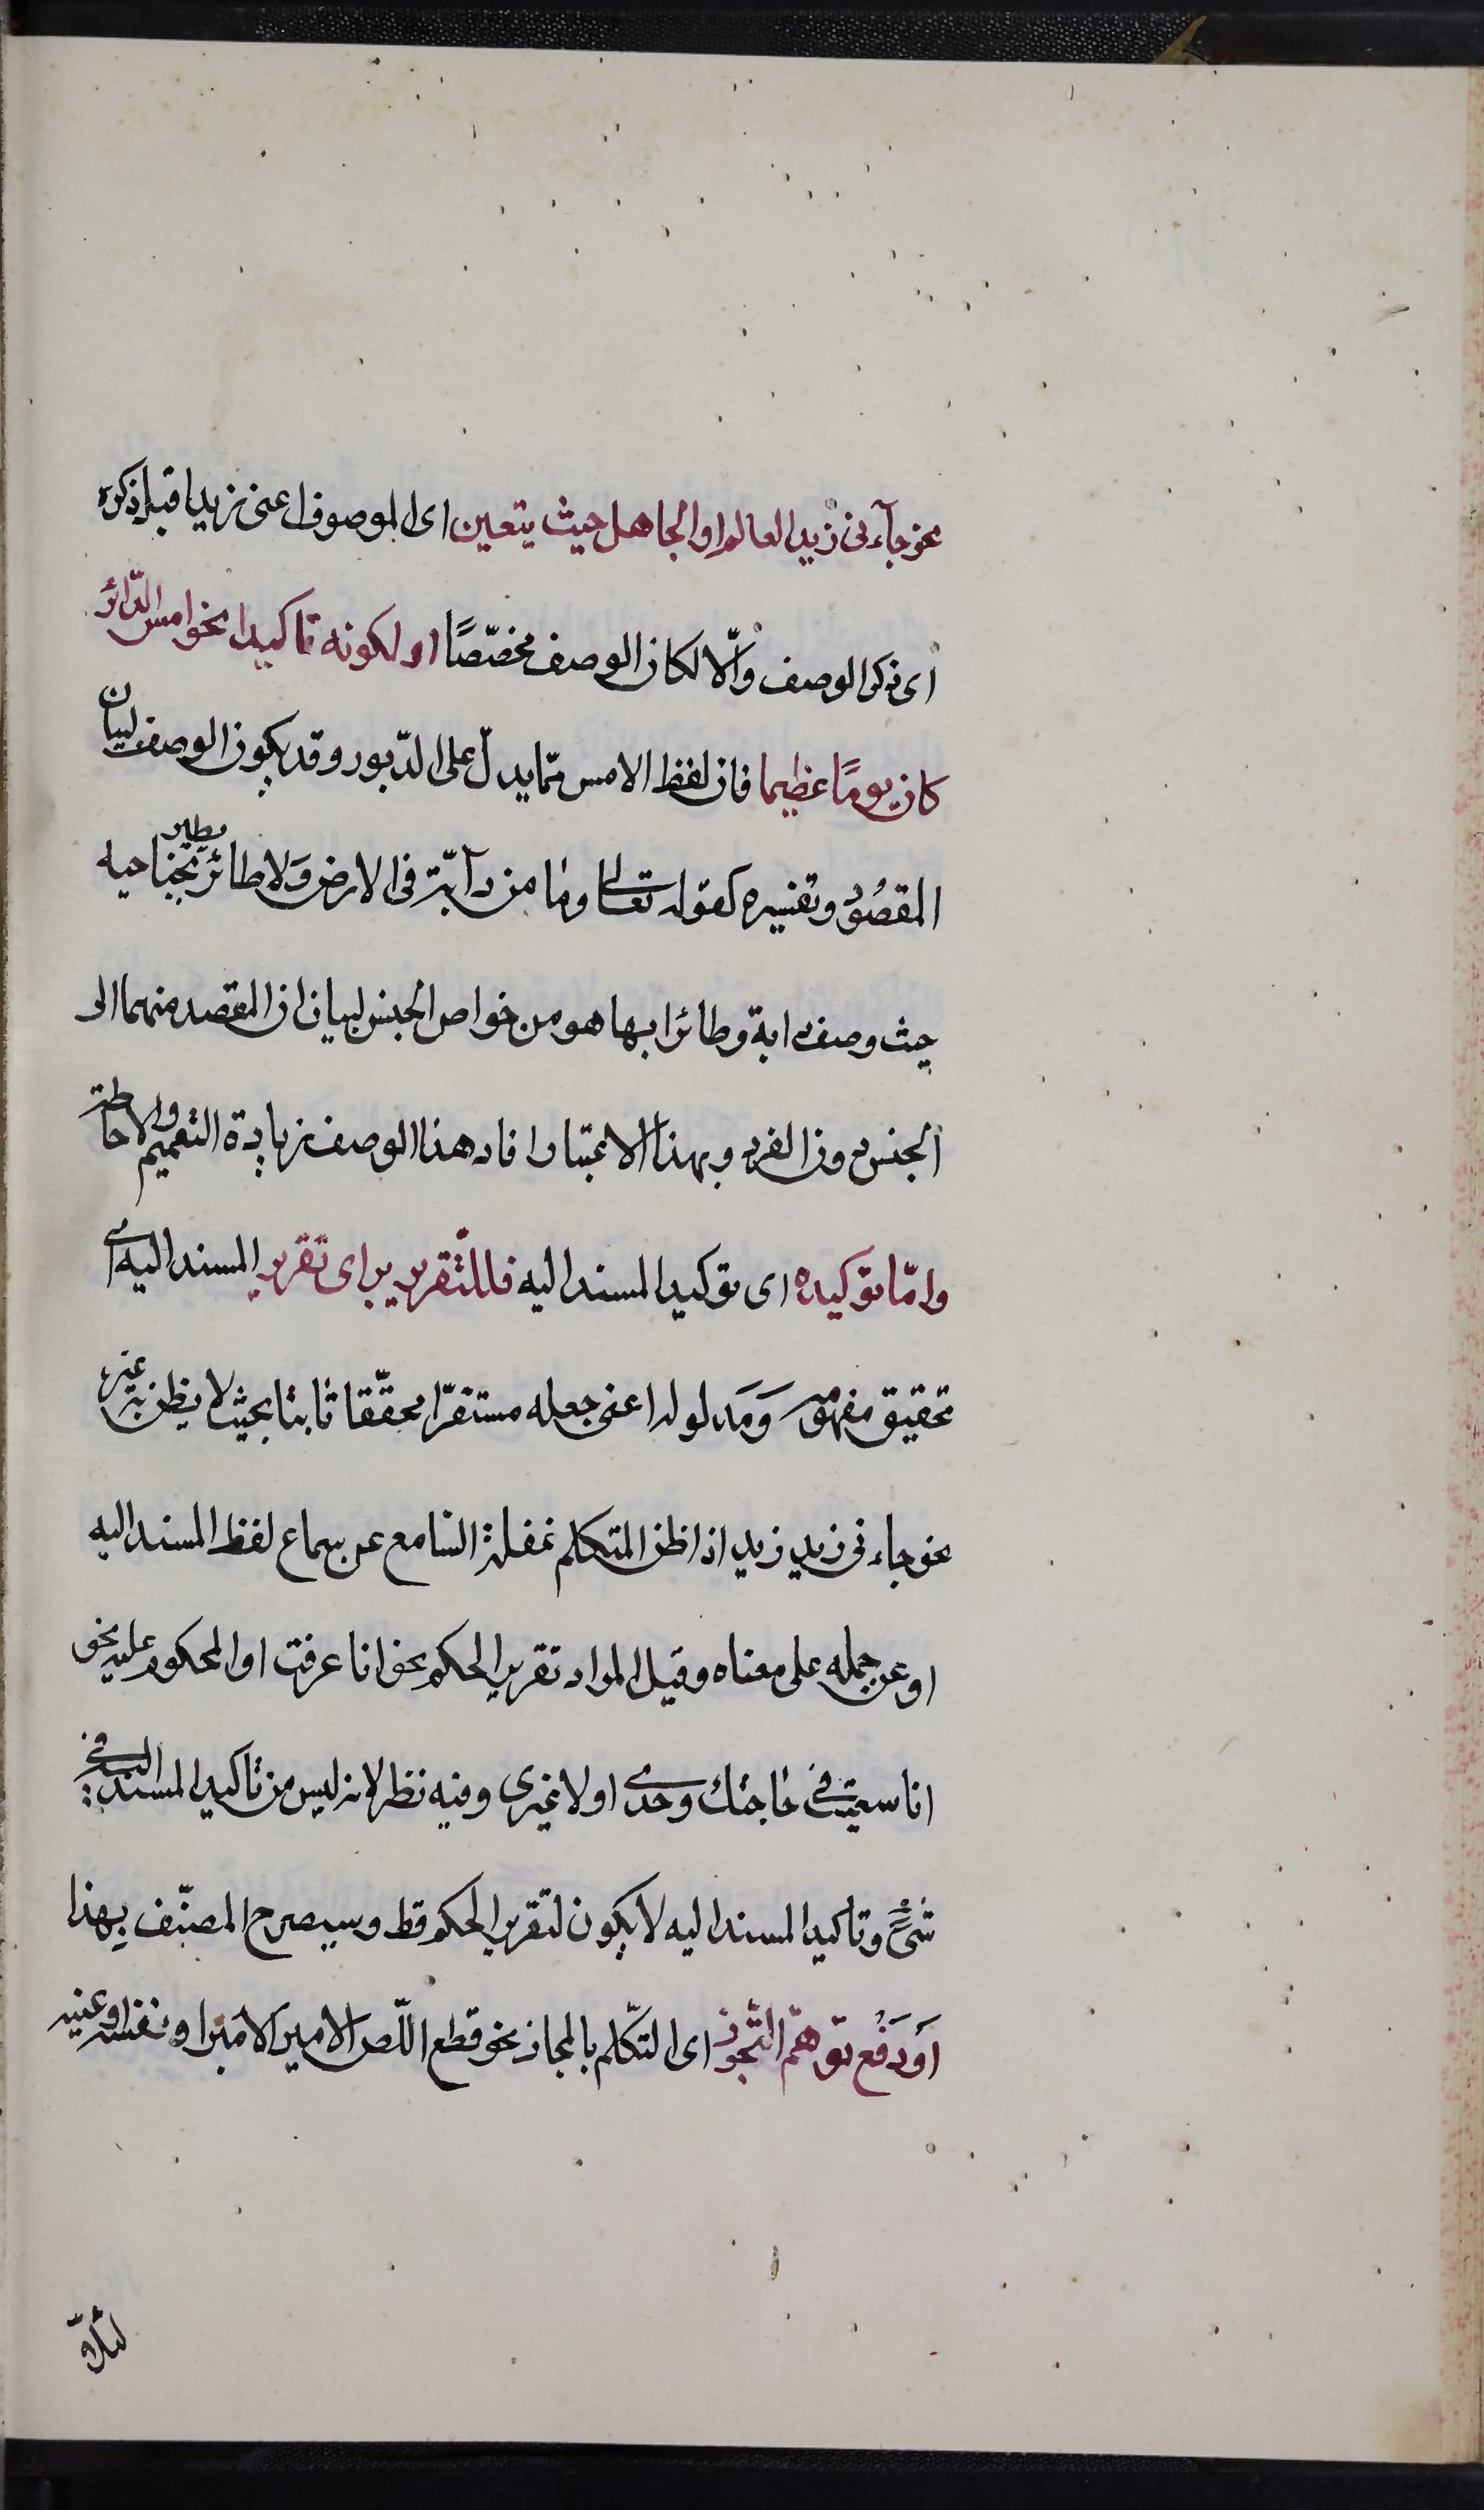 نحو جآءنی زید العالم او الجاهل حیث یتعین ای الموصوف اعنی زیدا قبل ذکره
ای ذکر الوصف والّا لکان الوصف مخصّصًا او لکونه تاکیدا نحو امس الدّابر
کان یومًا عظیما فان لفظ الامس ممّا یدلّ علی الدّبور وقد یکون الوصف لبیان
المقصُود وتفسیره کقوله تعالی وما من دآبّة فی الارض وَلا طائر یطیر بجناحیه
حیث وصف دابة وطائرا بها هو من خواص الجنس لبیان ان القصد منهما الی
الجنس دون الفرد وبهذا الاعتبار افاد هذا الوصف زیادة التعمیم والاحاطة
وامّا توکیده ای توکید المسند الیه فللتّقریر ای تقریر المسند الیه ای
تحقیق مفهومه وَمَدلوله اعنی جعله مستقرّا محقّقا ثابتا بحیث لا یظن به غیره
نحو جاءنی زید زید اذا ظن المتکلم غفلة السّامع عن سماع لفظ المسند الیه
او عن حمله علی معناه وقیل المراد تقریر الحکم نحو انا عرفت او المحکوم علیه نحو
انا سعیت فی حاجتك وحدی او لا غیری وفیه نظر لانه لیس من تاکید المسند الیه فی
شیءٍ وتاکید المسند الیه لا یکون لتقریر الحکم قط وسیصرح المصنّف بهذا
اَو دَفْع توهّم التّجوز ای التکّلم بالمجاز نحو قطع اللّص الامیر الامیر او نفسه او عینه
لئلّا